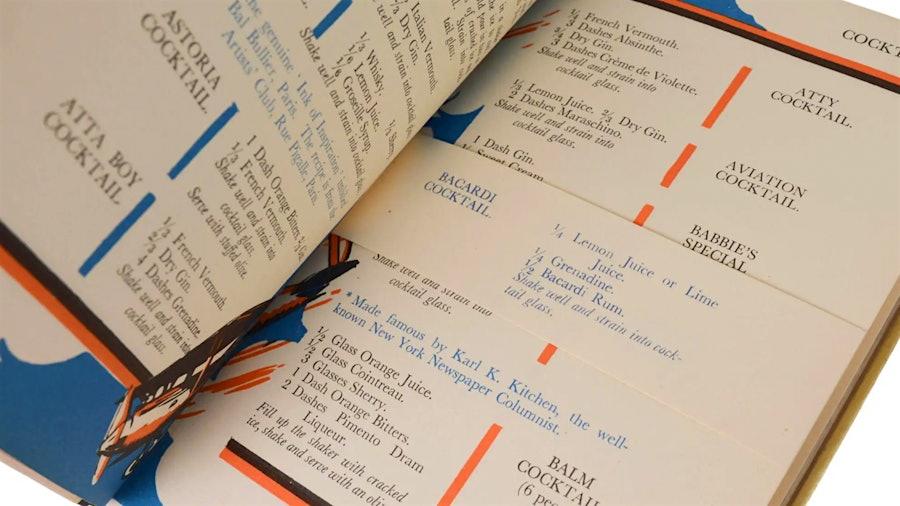 ASTORIA
COCKTAIL.
1 Dash Orange Bitters.
1/3 French Vermouth.
Shake well and strain into
cocktail glass.
Serve with stuffed olive.
ATTA BOY
COCKTAIL
1/3 French Vermouth.
2/3 Dry Gin.
4 Dashes Grenadine.
Shake well and strain into
cocktail glass.
genuine ' Ink of Inspiration ' imbibed
Bal Bullier, Paris. The recipe is
Artists' Club, Rue Pigalle, Paris.
Shake well and
1/3 Whisky.
Lemon Juice.
Groseille Syrup.
well and strain into cocktail
Italian Vermouth.
Dry Gin.
well and strain into
tail glass.
French Vermouth.
3 Dashes Absinthe.
Dry Gin.
3 Dashes Crème de Violette.
Shake well and strain into
cocktail glass.
ATTY
COCKTAIL.
1/3 Lemon Juice. 2/3 Dry Gin.
2 Dashes Maraschino.
Shake well and strain into
cocktail glass.
AVIATION
COCKTAIL.
1 Dash Gin.
Sweet Cream.
BABBIE'S
SPECIAL
BACARDI
COCKTAIL.
1/4 Lemon Juice or Lime
Juice.
1/4 Grenadine.
1/2 Bacardi Rum.
Shake well and strain into cock-
tail glass.
Shake well and strain into
cocktail glass.
* Made famous by Karl K. Kitchen, the well-
known New York Newspaper Columnist.
1/2 Glass Orange Juice.
1/2 Glass Cointreau.
3 Glasses Sherry.
1 Dash Orange Bitters.
2 Dashes Pimento Dram
Liqueur.
Fill up the shaker with cracked
ice, shake and serve with an
BALM
COCKTAIL
(6